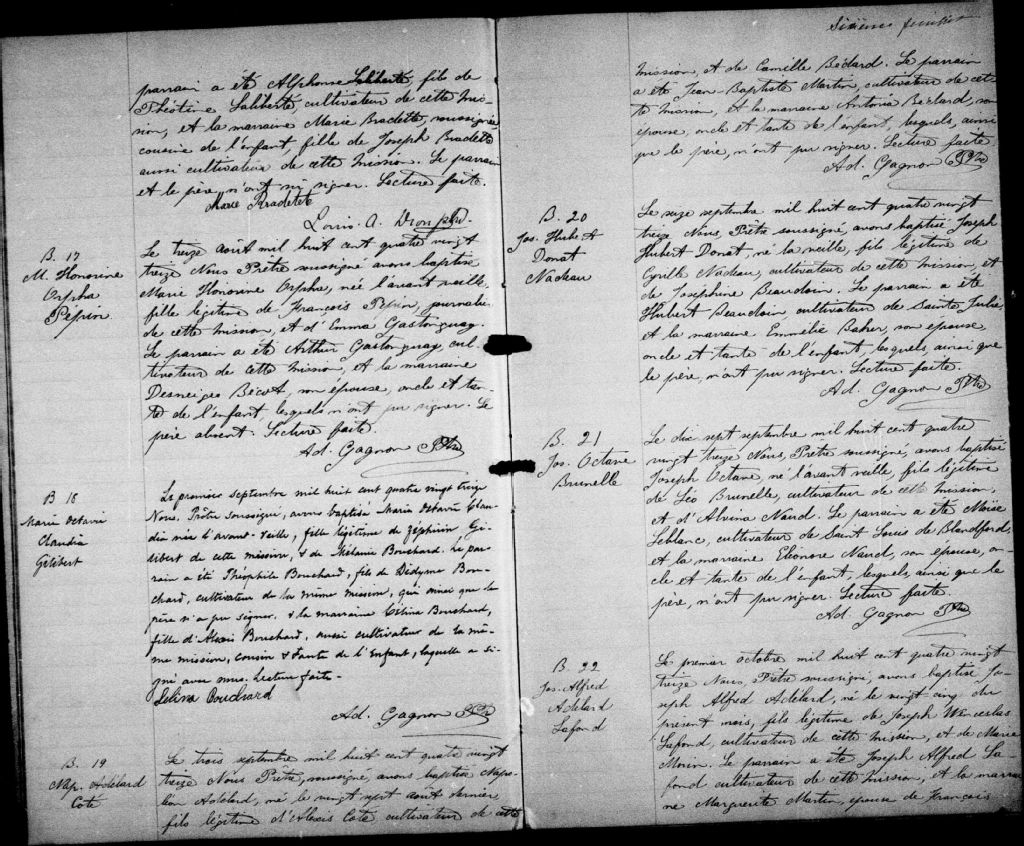 parrain a été Alphonse Laliberté, fils de
Théotine Laliberté, cultivateur de cette mis-
sion, et la marraine Marie Bradette, soussignée
cousine de l'enfant, fille de Joseph Bradette
aussi cultivateur de cette mission. Le parrain
et le père n'ont su signer. Lecture faite.
Marie Bradette
Louis. A. Dion ptre.
B. 17
M. Honorine
Orpha
Pépin
Le treize août mil huit cent quatre vingt
treize Nous Prêtre soussigné avons baptisé
Marie Honorine Orpha, née l'avant veille,
fille légitime de François Pépin, journalier
de cette mission, et d'Emma Gastonguay.
Le parrain a été Arthur Gastonguay, cul-
tivateur de cette mission, et la marraine
Desneiges Bécot, son épouse, oncle et tan-
te de l'enfant, lesquels n'ont pu signer. Le
père absent. Lecture faite.
Ad. Gagnon Ptre
B 18
Marie Octavie
Claudia
Gélibert
Le premier septembre mil huit cent quatre vingt treize
Nous, Prêtre soussigné, avons baptisé Marie Octavie Clau-
dia née l'avant-veille, fille légitime de Zéphirin Gé-
libert de cette mission, & de Mélanie Bouchard. Le par-
rain a été Théophile Bouchard, fils de Didyme Bou-
chard, cultivateur de la même mission, qui ainsi que le
père n'a pu signer. & la marraine Célina Bouchard,
fille d'Alexis Bouchard, aussi cultivateur de la mê-
me mission, cousin & tante de l'Enfant, laquelle a si-
gné avec nous. Lecture faite-
Selina Bouchard
Ad. Gagnon Ptre
B. 19
Nap. Adélard
Coté
Le trois septembre mil huit cent quatre vingt
treize Nous Prêtre, soussigné, avons baptisé Napo-
léon Adélard, né le vingt sept août dernier
fils légitime d'Alexis Coté cultivateur de cette
Sixième feuillet
mission, et de Camille Bédard. Le parrain
a été Jean-Baptiste Martin, cultivateur de cet-
te mission, et la marraine Antonia Bédard, son
épouse, oncle et tante de l'enfant, lesquels, ainsi
que le père, n'ont pu signer. Lecture faite
Ad. Gagnon Ptre
B. 20
Jos. Hubert
Donat
Nadeau
Le seize septembre mil huit cent quatre vingt
treize Nous, Prêtre soussigné, avons baptisé Joseph
Hubert Donat, né la veille, fils légitime de
Cyrille Nadeau, cultivateur de cette mission, et
de Joséphine Beaudoin. Le parrain a été
Hubert Beaudoin cultivateur de Sainte Julie,
et la marraine Emmélie Baker, son épouse,
oncle et tante de l'enfant, lesquels ainsi que
le père, n'ont pu signer. Lecture faite.
Ad. Gagnon Ptre
B. 21
Jos. Octave
Brunelle
Le dix sept septembre mil huit cent quatre
vingt treize Nous, Prêtre soussigné, avons baptisé
Joseph Octave, né l'avant veille, fils légitime
de Léo Brunelle, cultivateur de cette mission,
et d'Alvina Nard. Le parrain a été Moise
Leblanc, cultivateur de Saint Louis de Blandford
et la marraine Eléonore Nard, son épouse, on-
cle et tante de l'enfant, lesquels, ainsi que le
père, n'ont pu signer. Lecture faite.
Ad. Gagnon Ptre
B. 22
Jos. Alfred
Adélard
Lafond
Le premier octobre mil huit cent quatre vingt
treize Nous, Prêtre soussigné, avons baptisé Jo-
seph Alfred Adélard, né le vingt-cinq du
présent mois, fils légitime de Joseph Wenceslas
Lafond, cultivateur de cette mission, et de Marie
Morin. Le parrain a été Joseph Alfred La
fond cultivateur de cette mission, et la marrai
ne Marguerite Martin, épouse de François